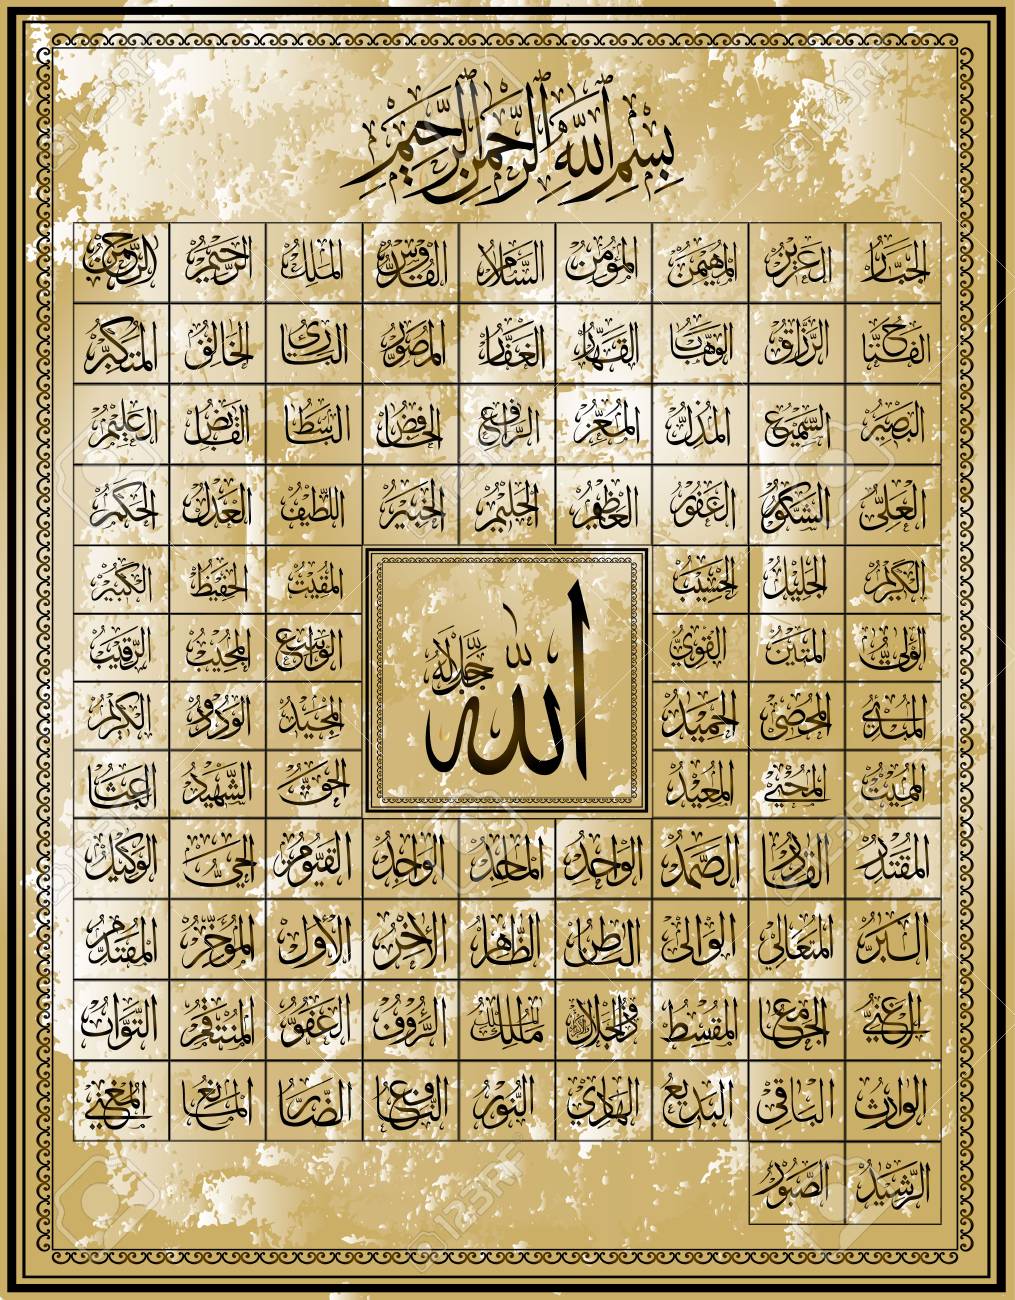 بِسْمِ اللَّهِ الرَّحْمٰنِ الرَّحِيمِ
الرحمن الرحيم الملك القدوس السلام المؤمن المهيمن العزيز الجبار
المتكبر الخالق البارئ المصور الغفار القهار الوهاب الرزاق الفتاح
العليم القابض الباسط الخافض الرافع المعز المذل السميع البصير
الحكم العدل اللطيف الخبير الحليم العظيم الغفور الشكور العلي
الكبير الحفيظ المقيت الحسيب الجليل الكريم
الرقيب المجيب الواسع القوي المتين الولي
الكريم الودود المجيد الحميد المحصي المبدئ
الباعث الشهيد الحق المعيد المحيي المميت
الله جل جلاله
الوكيل الحي القيوم الواجد الماجد الواحد الصمد القادر المقتدر
المقدم المؤخر الأول الآخر الظاهر الباطن الوالي المتعالي البر
التواب المنتقم العفو الرؤوف مالك الملك ذو الجلال المقسط الجامع الغني
المغني المانع الضار النافع النور الهادي البديع الباقي الوارث
الصبور الرشيد
123RF